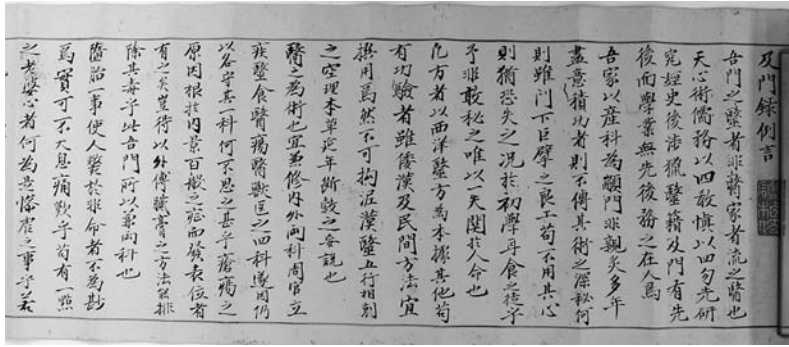 及門録例言
吾門之醫者非醫家者流之醫也
天心術儒務以四教慎以四勿先研
究經史後涉獵醫籍及門有先
後而學業無先後務之在人焉
吾家以産科為顓門非親炙多年
盡意積功者則不傳其術之深秘何
則雖門下巨擘之良工苟不用其心
則猶恐失之况於初學耳食之徒乎
予非敢秘之唯以一失関於人命也
凡方者以西洋醫方為本據其他苟
有功驗者雖倭漢及民間方法宜
撰用焉然不可拘泥漢醫五行相剋
之空理本草延年斷穀之妄説也
醫之為術也宜兼修内外両科周官立
疾醫食醫瘍醫獸醫之四科後因仍
以各守其一科何不思之甚乎瘡瘍之
原因根於内景百般之症而發表位者
有之矣豈得以外傅職膏之方法能排
除其毒乎此吾門所以兼両科也
墮胎一事使人斃於非命者不為尠
焉實可不大息痛歎乎苟有一點
之老婆心者何為意慘虐之事乎若